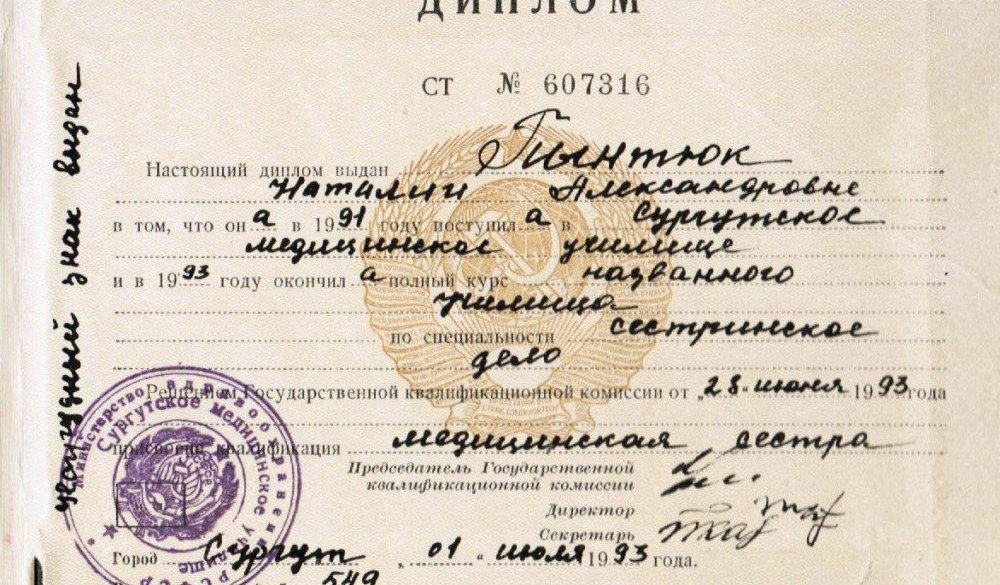 ДИПЛОМ
СТ № 607316
Настоящий диплом выдан Пынтюк
Наталии Александровне
в том, что он а в 1991 году поступил а в Сургутское
медицинское училище
и в 1993 году окончил а полный курс названного
училища
по специальности сестринское
дело
Решением Государственной квалификационной комиссии от „28" июня 1993 года
присвоена квалификация медицинская сестра
Председатель Государственной
квалификационной комиссии
Директор
Секретарь
Город Сургут 01 " июля 1993 года.
549
нагрудный знак выдан
Министерство здравоохранения
РСФСР
Сургутское медицинское училище